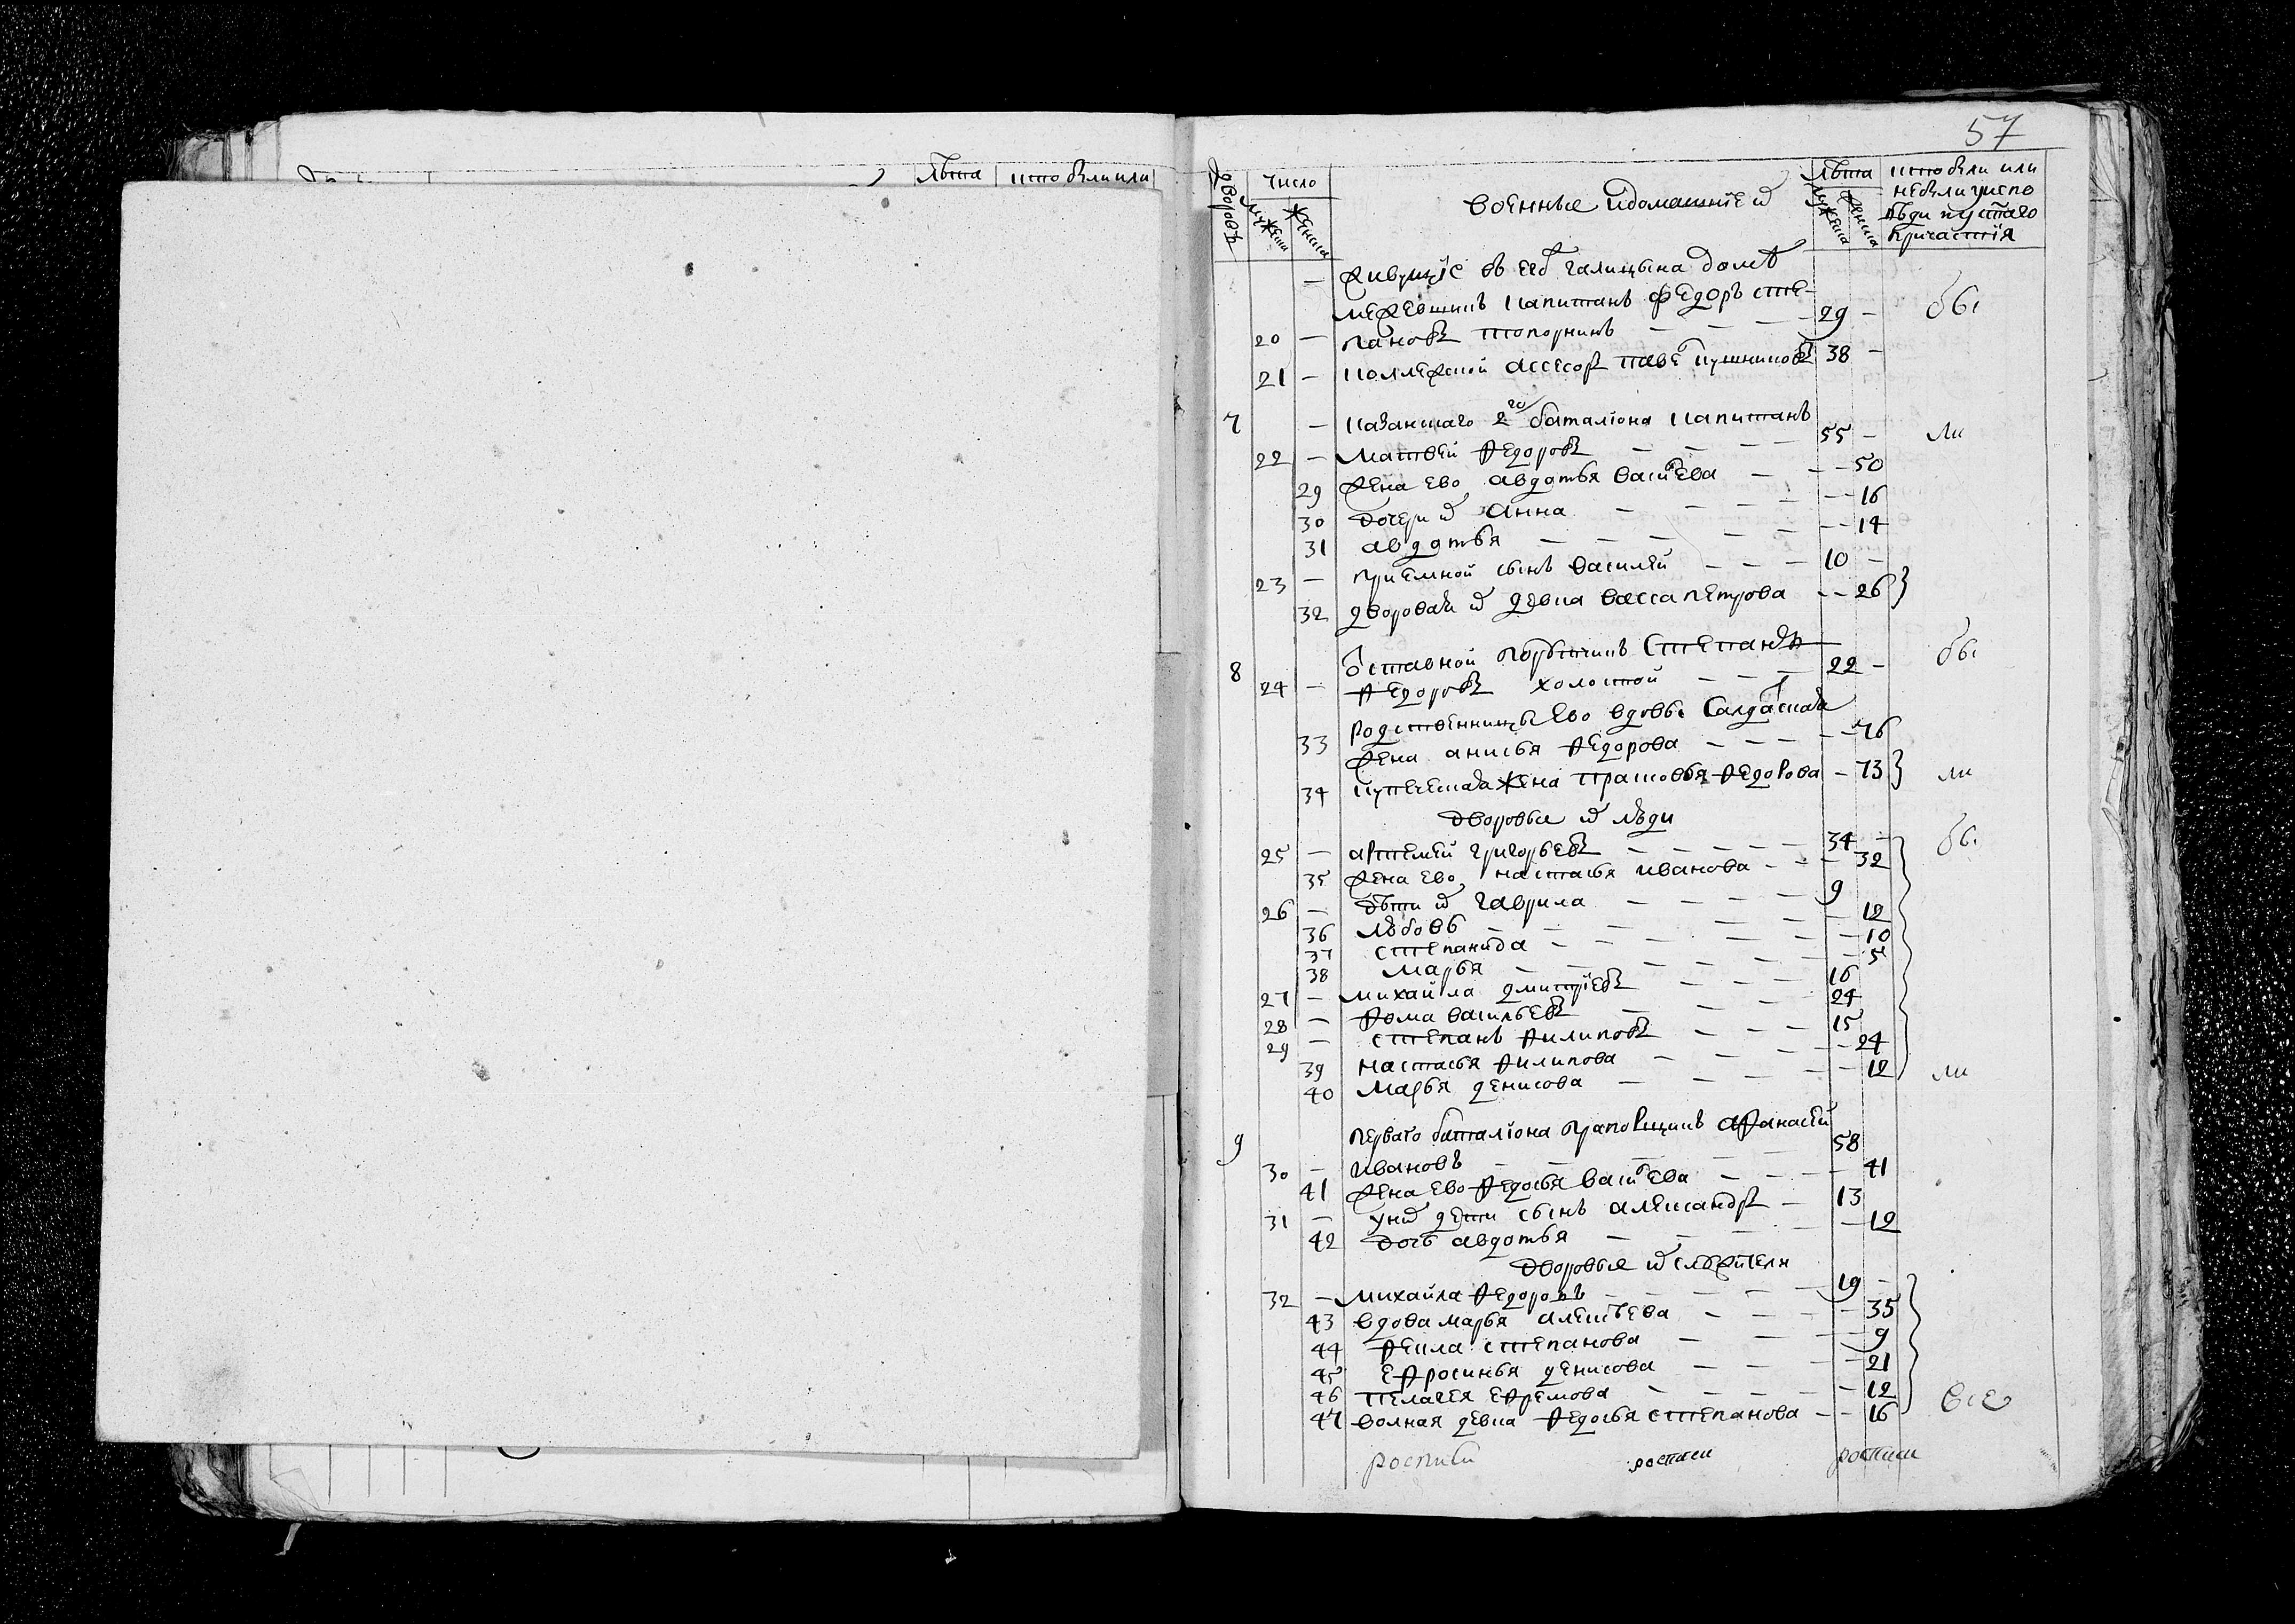 лѣта кто были или
57
Дворовъ Число мужеска женска Военные и домашние их лѣта мужеска женска кто были или
небыли у испо
вѣди и у стаго
причастїя
— живущїе въ его галицына домѣ
межевщикъ капитанъ Федоръ Сте-
20 — пановъ Топорнинъ — — — 29 — бы
21 — коллежской асcесоръ Пушниковъ 38 —
7 — казанскаго 2го баталїона капитанъ
22 — Матвей Федоровъ — — — 55 — ли
29 жена ево Авдотья Васильева — — — 50
30 дочери их Анна — — — — 16
31 Авдотья — — — — — 14
23 — приемной сынъ Василей — — — 10 —
32 дворовая их девка Васса Петрова — — 26
8 отставной порутчикъ Степанъ
24 — Федоровъ холостой — — — 22 — бы
родственницы ево вдовы Салдатская
33 жена Анисья Федорова — — — — 76
34 купецкая жена Прасковья Федорова — 73 ли
дворовые их люди
25 — Артемей Григорьевъ — — — — 34 — бы
35 жена ево Настасья Иванова — — — 32
26 — дѣти их Гаврила — — — — 9
36 Любовь — — — — — 12
37 Степанида — — — — — 10
38 Марья — — — — — 5
27 — Михайла Дмитрїевъ — — — 16
28 — Фома Васильевъ — — — 24
29 — Степанъ Филиповъ — — — 15
39 Настасья Филипова — — — — 24
40 Марья Денисова — — — — 12 ли
9 перваго баталїона прапорщикъ Афанасей
30 — Ивановъ — — — — 58
41 жена ево Федосья Васильева — — — 41
31 — у них дети сынъ Александръ — 13
42 дочь Авдотья — — — — 12
дворовые их служители
32 — Михайла Федоровъ — — — — 19 —
43 вдова Марья Алексеева — — — 35
44 Фекла Степанова — — — 9
45 Ефросинья Денисова — — — 21
46 Пелагея Ефремова — — — — 12
47 волная девка Федосья Степанова — — 16 все
росписи росписи росписи